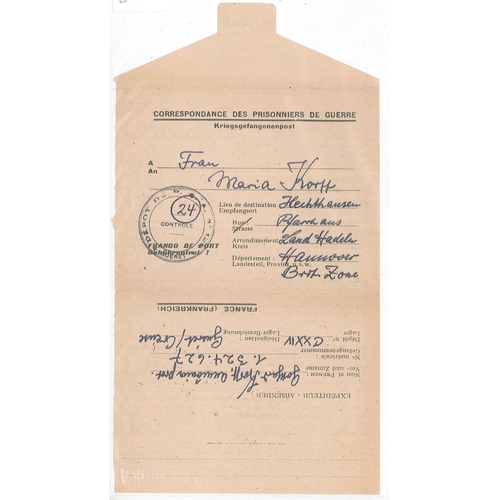 CORRESPONDANCE DES PRISONNIERS DE GUERRE
Kriegsgefangenenpost
A Frau
An
Maria Korff
Lieu de destination Hechthausen
Empfangsort
Rue Pfarrhaus
Strasse
Arrondissement Land Hadeln
Kreis
Département : Hannover
Landesteil, Provinz u.s.w.
Brit. Zone
DEPOT DE P. G.
24
CONTROLE
GUERET
FRANCO DE PORT
Gebührenfrei !
FRANCE (FRANKREICH)
Dépôt nº CXXIV Désignation : Guéret/Creuse
Lager Lager-Bezeichnung
Nº matricule : 1.324.627
Gefangenennummer
Nom et Prénom : Korff
Vor- und Zuname
EXPÉDITEUR - ABSENDER